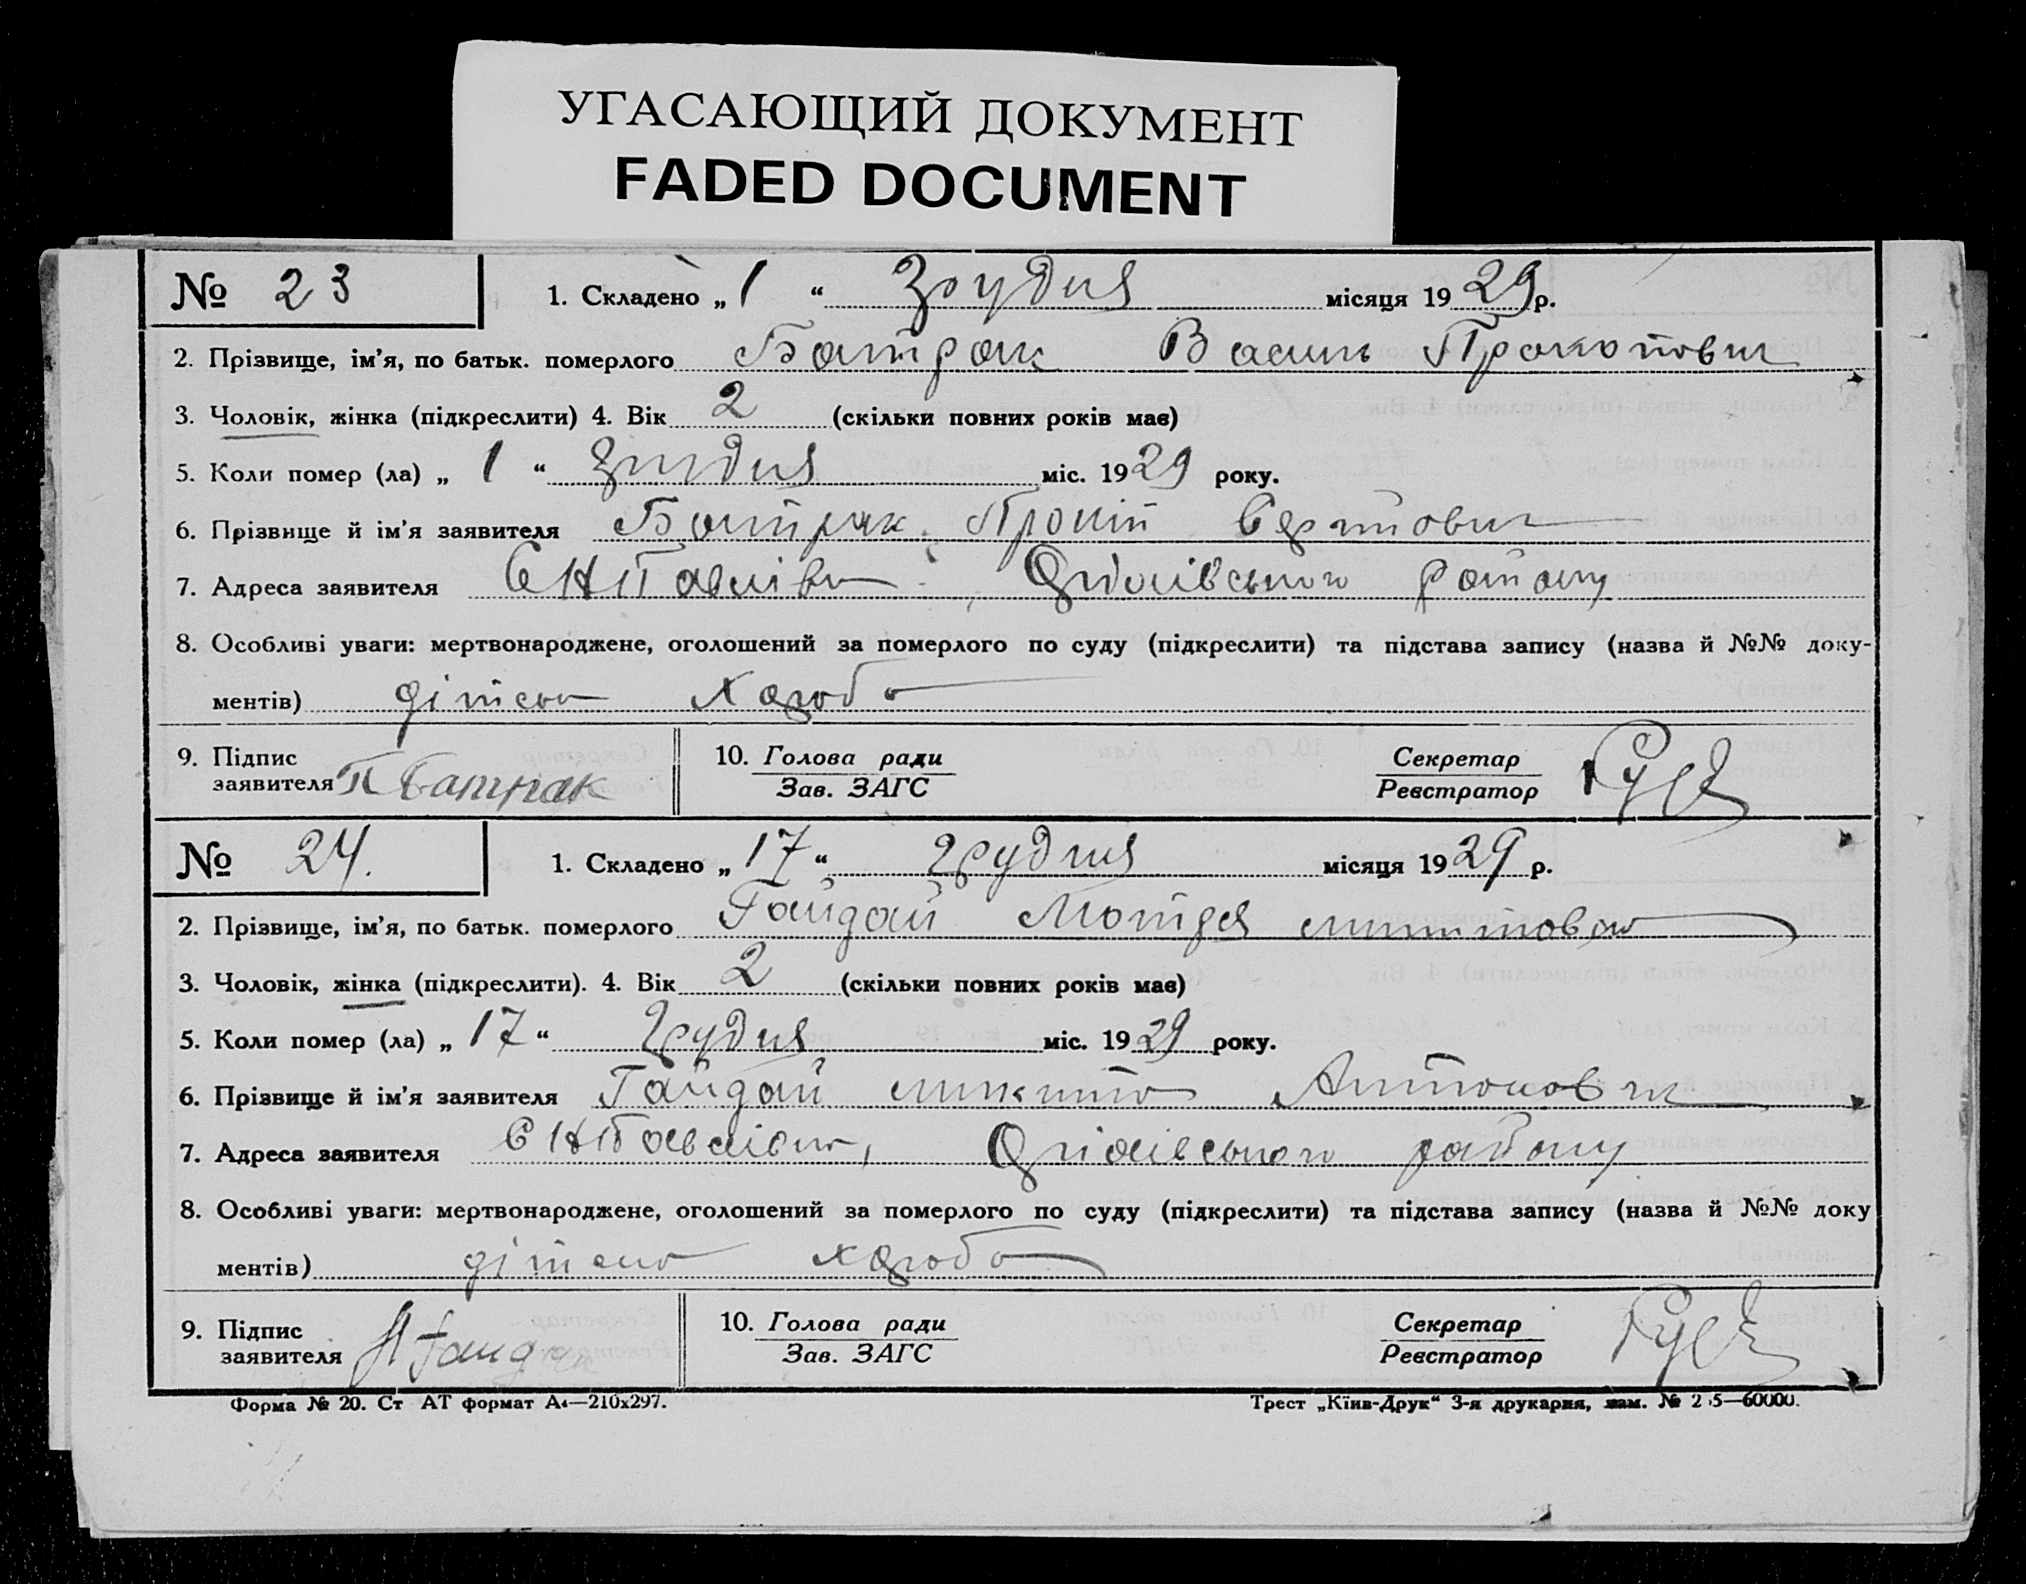 УГАСАЮЩИЙ ДОКУМЕНТ
FADED DOCUMENT
№ 23 1. Складено „ 1 “ Грудня місяця 1929 р.
2. Прізвище, ім’я, по батьк. померлого Батрак Василь Прокопович
3. Чоловік, жінка (підкреслити) 4. Вік 2 (скільки повних років має)
5. Коли помер (ла) „ 1 “ Грудня міс. 1929 року.
6. Прізвище й ім’я заявителя Батрак Прокіп
7. Адреса заявителя району
8. Особливі уваги: мертвонароджене, оголошений за померлого по суду (підкреслити) та підстава запису (назва й №№ доку-
ментів) дітсьа хороба
9. Підпис заявителя П Батрак 10. Голова ради Зав. ЗАГС Секретар Реєстратор
№ 24. 1. Складено „ 17 “ Грудня місяця 1929 р.
2. Прізвище, ім’я, по батьк. померлого Гайдай Мотря
3. Чоловік, жінка (підкреслити). 4. Вік 2 (скільки повних років має)
5. Коли помер (ла) „ 17 “ Грудня міс. 1929 року.
6. Прізвище й ім’я заявителя Гайдай Микита Антонович
7. Адреса заявителя району
8. Особливі уваги: мертвонароджене, оголошений за померлого по суду (підкреслити) та підстава запису (назва й №№ доку
ментів) хороба
9. Підпис заявителя 10. Голова ради Зав. ЗАГС Секретар Реєстратор
Форма № 20. Ст АТ формат А4—210х297. Трест „Київ-Друк“ 3-я друкарня, зам. № —60000.